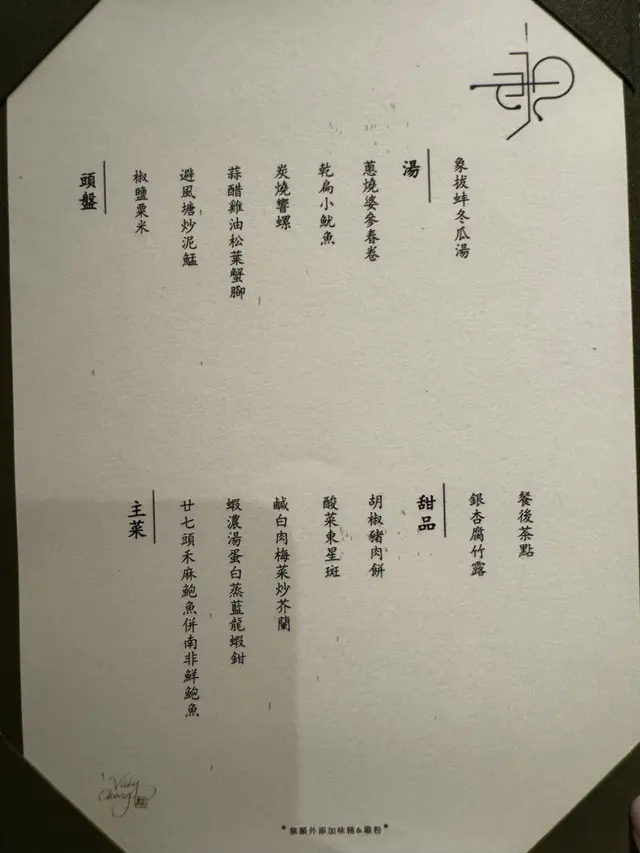 頭盤
椒鹽粟米
避風塘炒泥鯭
蒜醋雞油松葉蟹腳
炭燒響螺
乾扁小魷魚
蔥燒婆參春卷
湯
象拔蚌冬瓜湯
主菜
廿七頭禾麻鮑魚併南非鮮鮑魚
蝦濃湯蛋白蒸藍龍蝦鉗
鹹白肉梅菜炒芥蘭
酸菜東星斑
胡椒豬肉餅
甜品
銀杏腐竹露
餐後茶點
Vicky
Cheng
*無額外添加味精&雞粉*